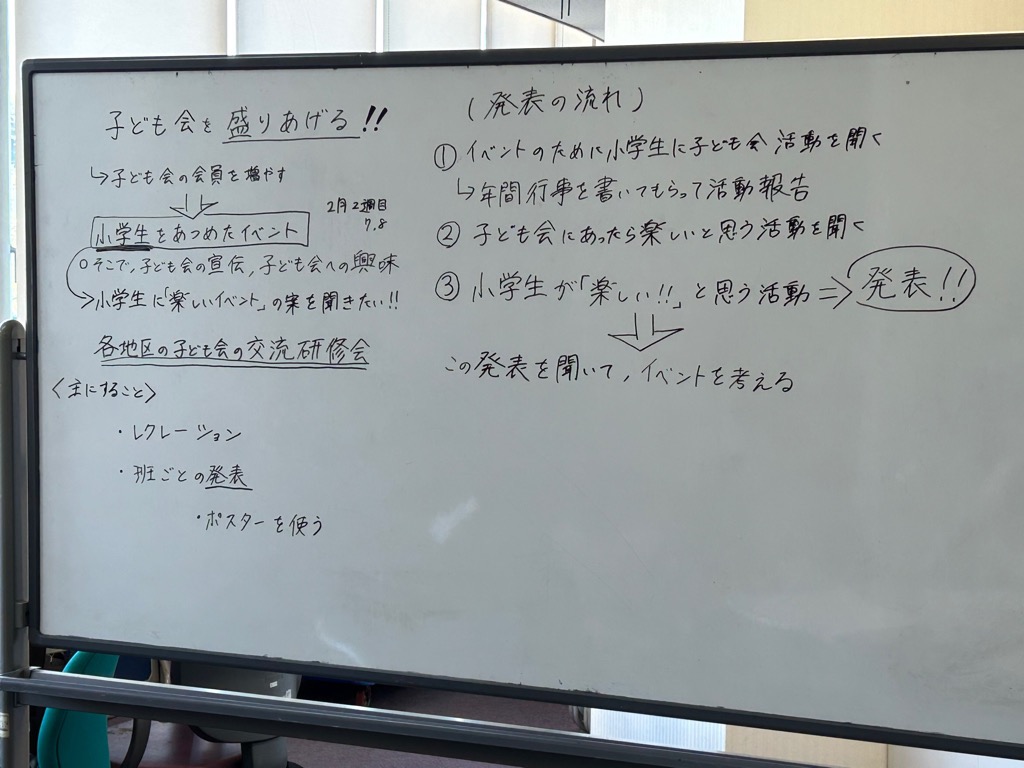 子ども会を盛りあげる!!
↳子ども会の会員を増やす
2月2週目
7,8
小学生をあつめたイベント
○そこで,子ども会の宣伝,子ども会への興味
→小学生に「楽しいイベント」の案を聞きたい!!
各地区の子ども会の交流研修会
〈主にすること〉
・レクレーション
・班ごとの発表
・ポスターを使う
(発表の流れ)
① イベントのために小学生に子ども会活動を聞く
↳年間行事を書いてもらって活動報告
② 子ども会にあったら楽しいと思う活動を聞く
③ 小学生が「楽しい!!」と思う活動⇒発表!!
この発表を聞いて,イベントを考える